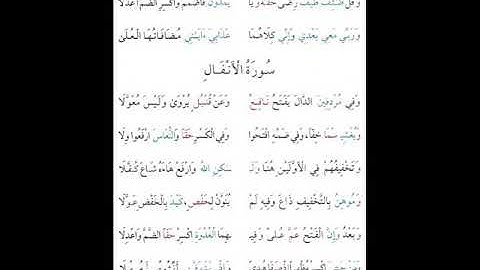 وَقُلْ طَائِفٌ طَيْفٌ رِضًى حَقُّهُ وَيَا يَمُدُّونَ فَاضْمُمْ وَاكْسِرِ الضَّمَّ أَعْدَلَا
وَرَبِّي مَعِي بَعْدِي وَإِنِّي كِلَاهُمَا عَذَابِيَ ءَايَتِي مُضَافَاتُهَا الْعُلَى
سُورَةُ الْأَنْفَالِ
وَفِي مُرْدِفِينَ الدَّالَ يَفْتَحُ نَافِعٌ وَعَنْ قُنْبُلٍ يُرْوَى وَلَيْسَ مُعَوَّلَا
وَيُغْشِي سَمَا خِفًّا وَفِي ضَمِّهِ افْتَحُوا وَفِي الْكَسْرِ حَقًّا وَالنُّعَاسَ ارْفَعُوا وِلَا
وَتَخْفِيفُهُمْ فِي الْأَوَّلَيْنِ هُنَا وَلَـ ـكِنِ اللهُ وَارْفَعْ هَاءَهُ شَاعَ كُفَّلَا
وَمُوهِنُ بِالتَّخْفِيفِ ذَاعَ وَفِيهِ لَمْ يُنَوَّنْ لِحَفْصٍ كَيْدَ بِالْخَفْضِ عَوَّلَا
وَبَعْدُ وَإِنَّ الْفَتْحُ عَمَّ عُلًى وَفِيـ ـهِمَا الْعُدْوَةِ اكْسِرْ حَقًّا الضَّمَّ وَاعْدِلَا